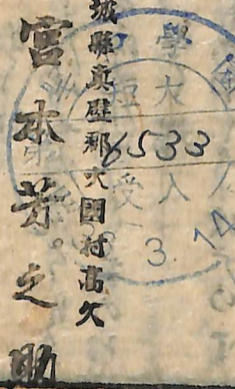 城縣真壁郡大國村高久
宮本芳之助
學
短大
6533
受入
3.14